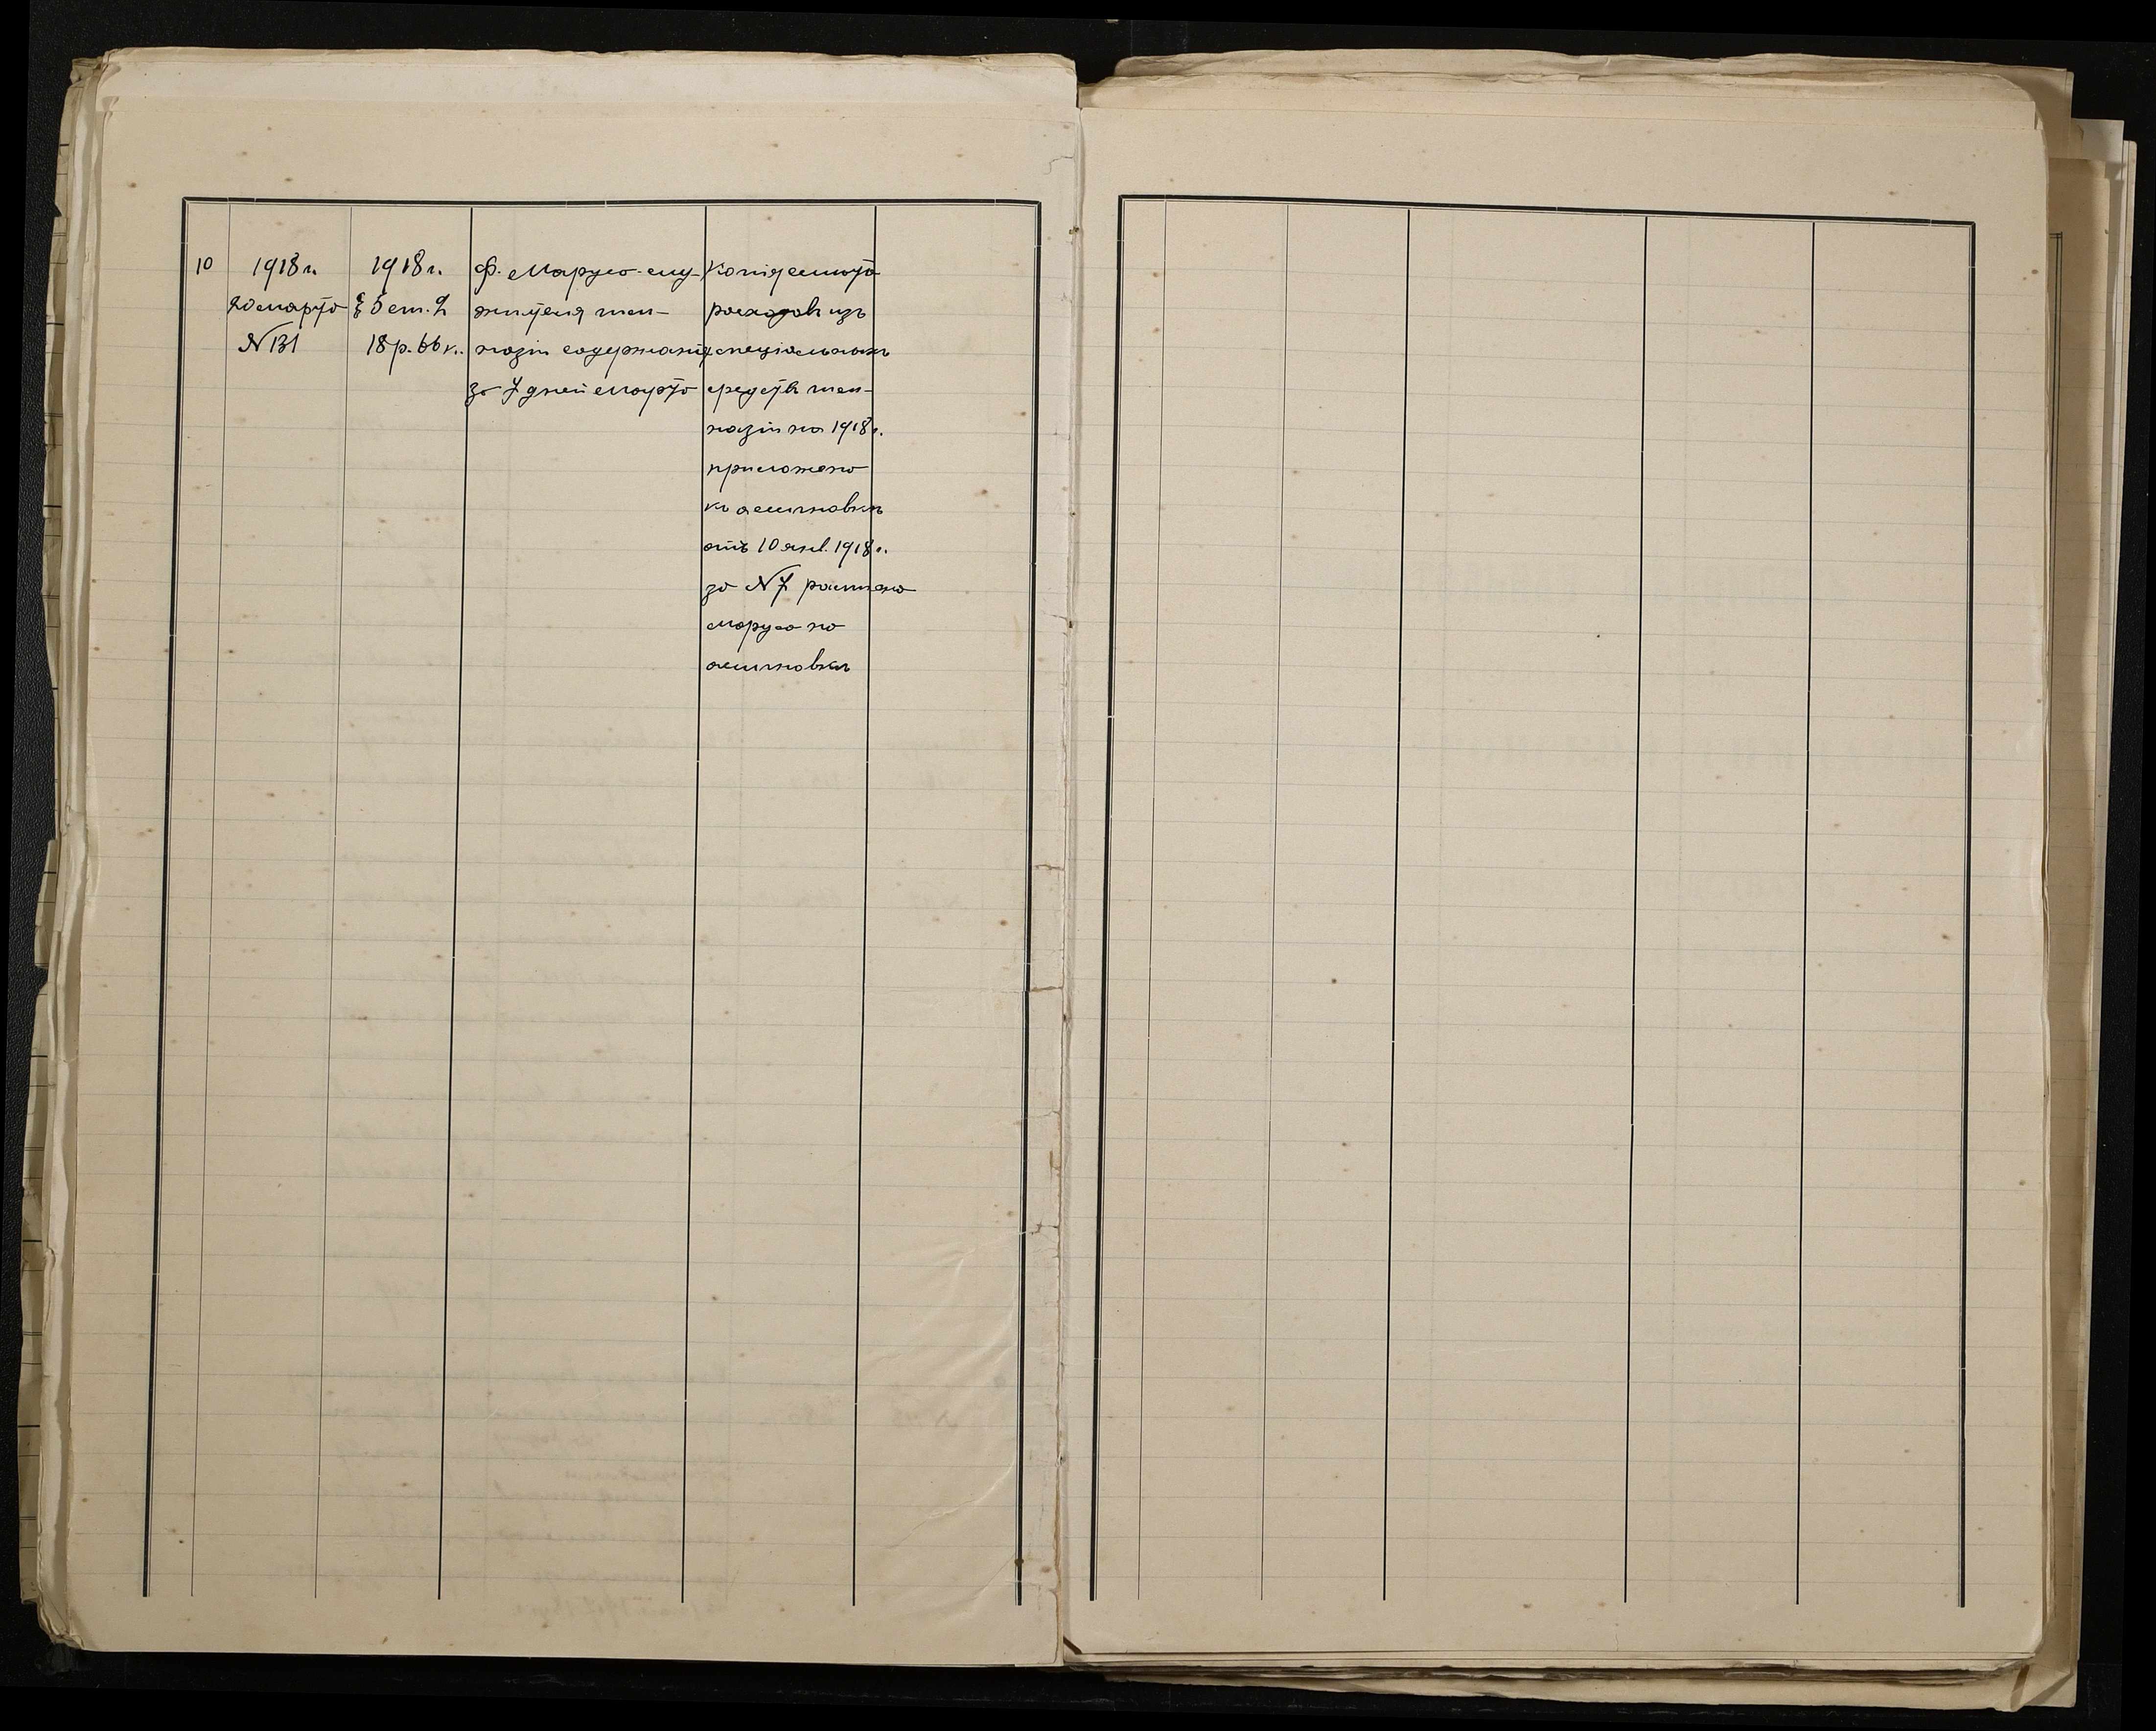 10
1918 г.
20 марта
№ 131
1918 г.
§ 5 ст. 2
18 р. 66 к.
Ф. Марую-слу-
жителя гим-
назіи содержанія
за 7 дней марта
Копія сметы
расходовъ изъ
спеціальныхъ
средствъ гим-
назіи на 1918 г.
приложена
къ ассигновкѣ
отъ 10 янв. 1918 г.
за № 7
на
ассигновкѣ